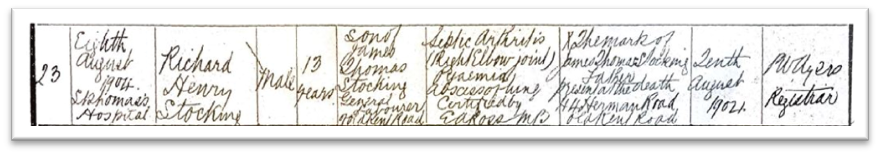 23
Eighth
August
1904.
St Thomas's
Hospital
Richard
Henry
Stocking
Male
13
years
Son of
James
Thomas
Stocking
General
Labourer
Old Kent Road
Septic Arthritis
(Right Elbow joint)
Pyaemia
Abscess of lung
Certified by
E A Ross MB
X The mark of
James Thomas Stocking
Father
present at the death
44 Herman Road
Old Kent Road
Tenth
August
1904.
P W Ayers
Registrar